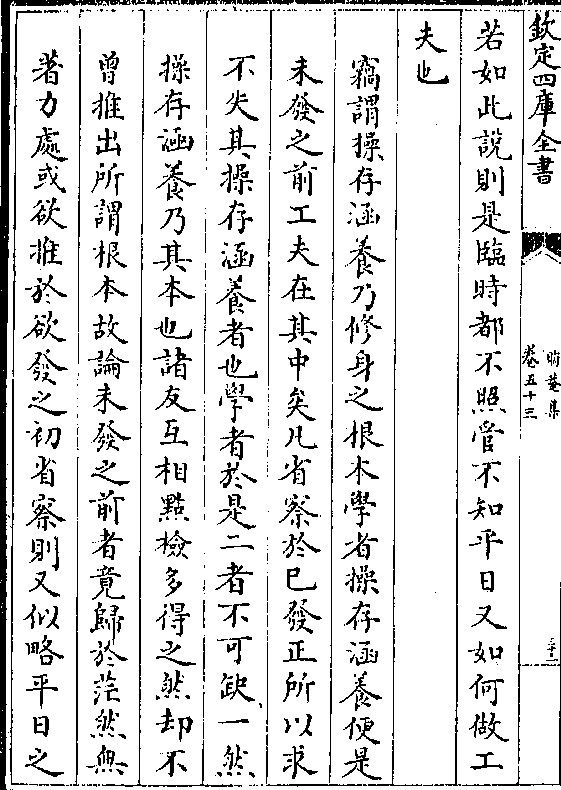 欽定四庫全書
晦菴集
卷五十三
三十二
若如此說則是臨時都不照管不知平日又如何做工
夫也
竊謂操存涵養乃修身之根本學者操存涵養便是
未發之前工夫在其中矣凡省察於已發正所以求
不失其操存涵養者也學者於是二者不可缺一然
操存涵養乃其本也諸友互相點檢多得之然却不
曽推出所謂根本故論未發之前者竟歸於茫然無
著力處或欲推於欲發之初省察則又似略平日之